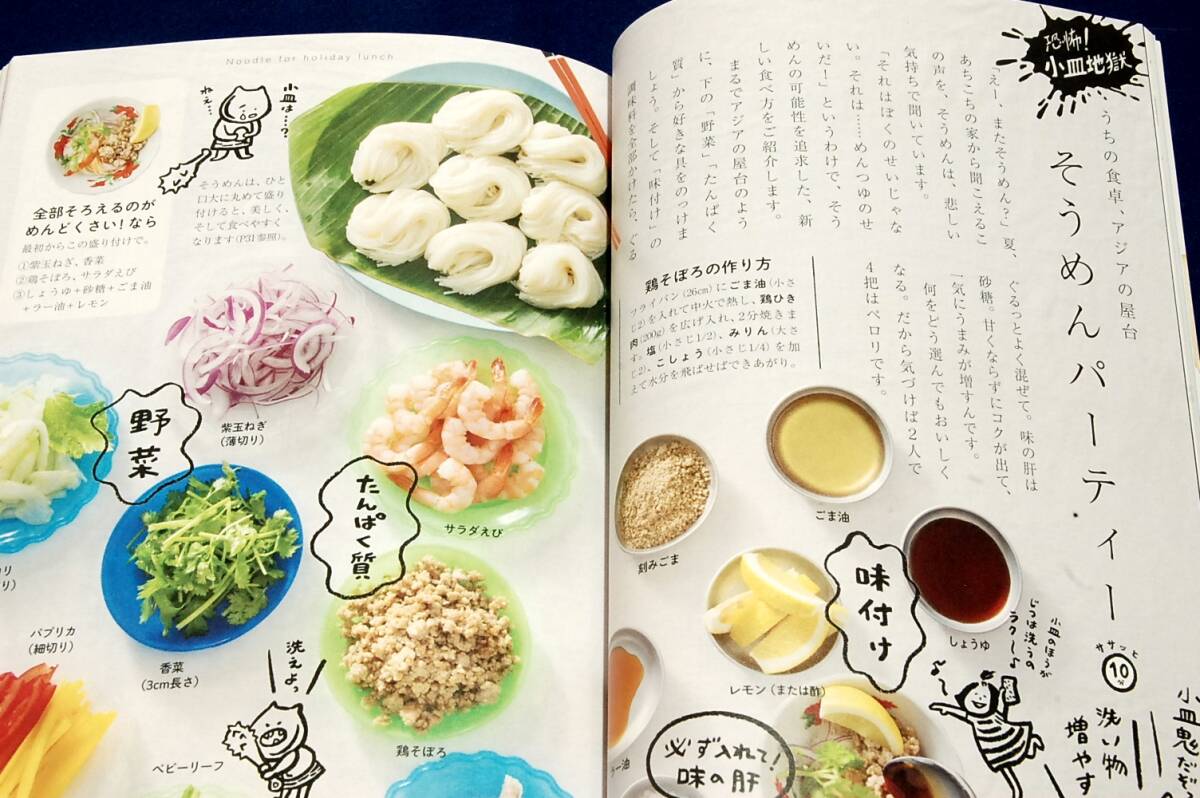 恐怖!
小皿地獄
うちの食卓、アジアの屋台
そうめんパーティー
ササッと
10分
「えー、またそうめん?」夏、
あちこちの家から聞こえるこ
の声を、そうめんは、悲しい
気持ちで聞いています。
「それはぼくのせいじゃな
い。それは……めんつゆのせ
いだ!」というわけで、そう
めんの可能性を追求した、新
しい食べ方をご紹介します。
まるでアジアの屋台のよう
に、下の「野菜」「たんぱく
質」から好きな具をのっけま
しょう。そして「味付け」の
調味料を全部かけたら、ぐる
ぐるっとよく混ぜて。味の肝は
砂糖。甘くならずにコクが出て、
一気にうまみが増すんです。
何をどう選んでもおいしく
なる。だから気づけば2人で
4把はペロリです。
鶏そぼろの作り方
フライパン(26cm)にごま油(小さ
じ2)を入れて中火で熱し、鶏ひき
肉(200g)を広げ入れ、2分焼きま
す。塩(小さじ1/2)、みりん(大さ
じ2)、こしょう(小さじ1/4)を加
えて水分を飛ばせばできあがり。
ごま油
刻みごま
味付け
しょうゆ
レモン(または酢)
ラー油
必ず入れて!
味の肝
小皿のほうが
じつは洗うの
ラクー♪
小皿鬼だぞっ
洗い物
増やす
Noodle for holiday lunch
小皿は…?
ねぇ…
全部そろえるのが
めんどくさい!なら
最初からこの盛り付けで。
①紫玉ねぎ、香菜
②鶏そぼろ、サラダえび
③しょうゆ+砂糖+ごま油
+ラー油+レモン
そうめんは、ひと
口大に丸めて盛り
付けると、美しく、
そして食べやすく
なります(P31参照)。
野菜
紫玉ねぎ
(薄切り)
たんぱく質
サラダえび
パプリカ
(細切り)
香菜
(3cm長さ)
洗えよっ
鶏そぼろ
ベビーリーフ